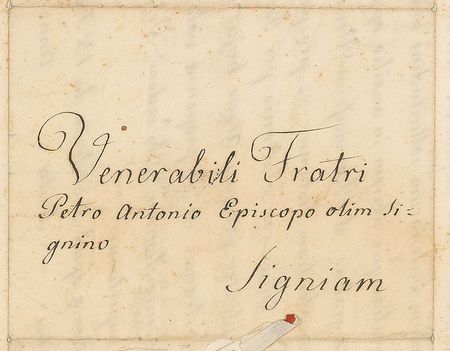 Venerabili Fratri
Petro Antonio Episcopo olim Si=
gnino
Signiam